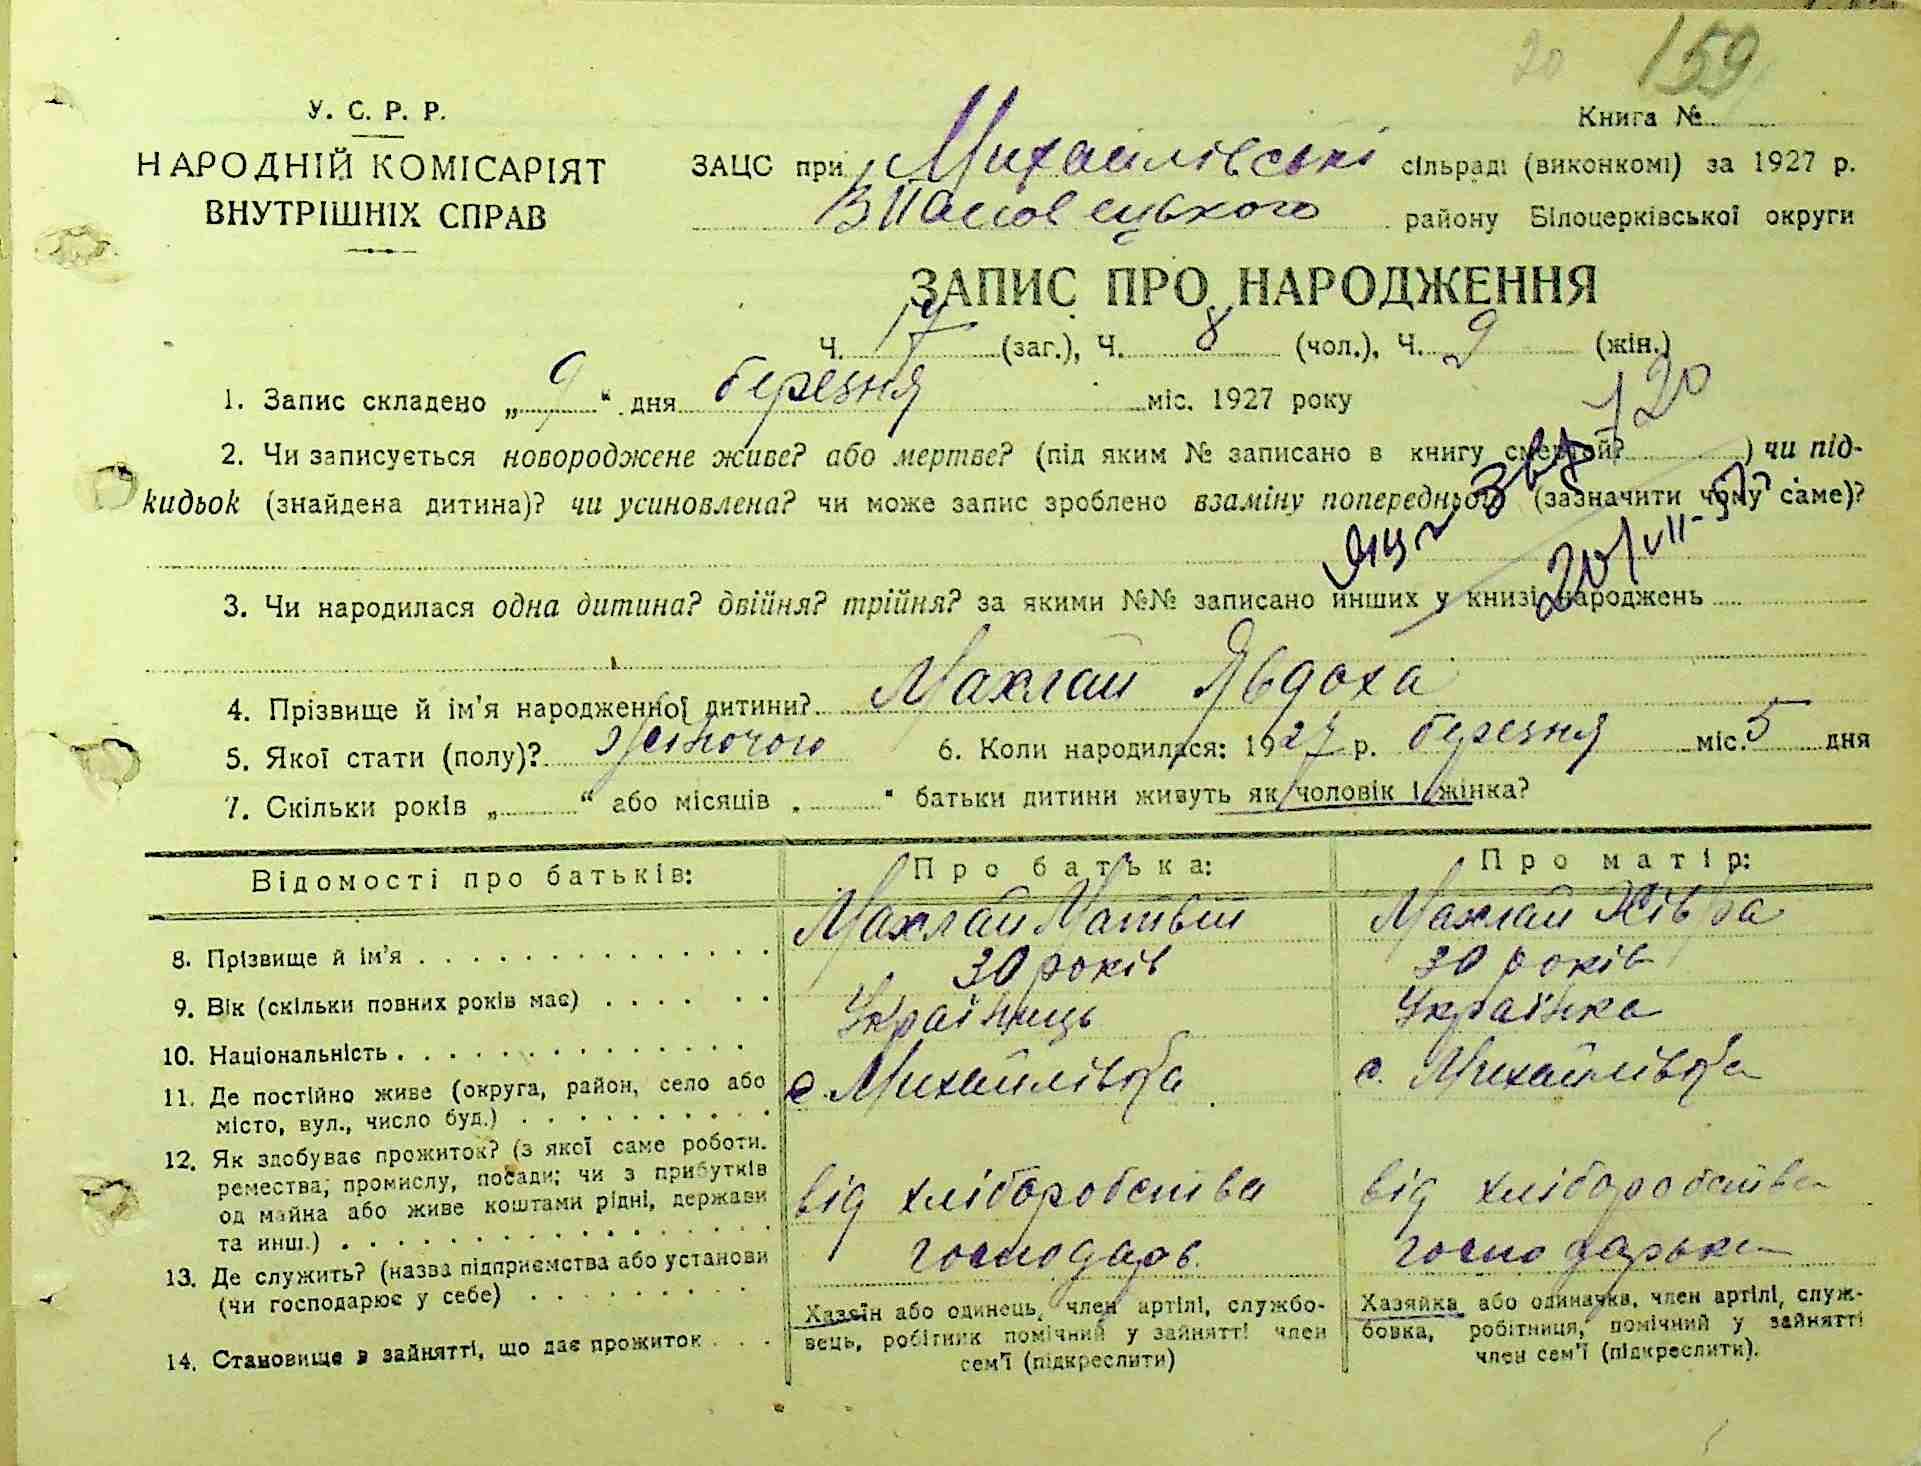 20 159
У. С. Р. Р.
Книга №
НАРОДНІЙ КОМІСАРІЯТ
ВНУТРІШНІХ СПРАВ
ЗАЦС при Михайлівські сільраді (виконкомі) за 1927 р.
району Білоцерківської округи
ЗАПИС ПРО НАРОДЖЕННЯ
Ч. 17 (заг.), Ч. 8 (чол.), Ч. 9 (жін.)
1. Запис складено „ 9 “ дня березня міс. 1927 року
120
2. Чи записується новороджене живе? або мертве? (під яким № записано в книгу смертей? ) чи під-
кидьок (знайдена дитина)? чи усиновлена? чи може запис зроблено взаміну попереднього (зазначити чому саме)?
3. Чи народилася одна дитина? двійня? трійня? за якими №№ записано инших у книзі народжень
4. Прізвище й ім'я народженної дитини? Махлай Явдоха
5. Якої стати (полу)? жіночого 6. Коли народилася: 1927 р. березня міс. 5 дня
7. Скільки років „ “ або місяців „ “ батьки дитини живуть як чоловік і жінка?
Відомості про батьків: Про батька: Про матір:
8. Прізвище й ім'я Махлай Матвій Махлай Хівря
9. Вік (скільки повних років має) 30 років 30 років
10. Національність Українець Українка
11. Де постійно живе (округа, район, село або
місто, вул., число буд.) с. Михайлівка с. Михайлівка
12. Як здобуває прожиток? (з якої саме роботи.
ремества; промислу, посади; чи з прибутків
од майна або живе коштами рідні, держави
та инш.) від хліборобства від хліборобства
13. Де служить? (назва підприємства або установи
(чи господарює у себе) господарь господарька
14. Становище в зайнятті, що дає прожиток
Хазяїн або одинець, член артілі, службо-
вець, робітник помічний у зайнятті член
сем'ї (підкреслити)
Хазяйка або одиначка, член артілі, служ-
бовка, робітниця, помічний у зайнятті
член сем'ї (підкреслити).